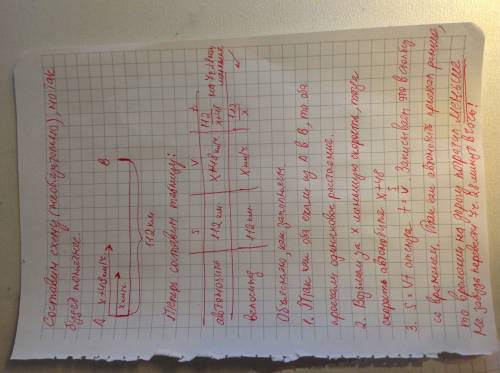 Составим схему (необязательно), но так
будет понятнее.
A x+48км/ч. B
x км/ч
112 км
Теперь составим таблицу:
S V t
автомобиль 112 км x+48км/ч 112/x+48 на 4ч. 28мин меньше
велосипед 112 км x км/ч 112/x
Объясняю, как заполняем.
1. Так как оба ехали из A в B, то оба
проехали одинаковое расстояние.
2. Возьмем за x меньшую скорость, тогда
скорость автомобиля x+48
3. S = Vt отсюда t = S/V Записываем это в графу
со временем. Так как автомобиль приехал раньше,
то времени на дорогу потратил меньше
на 4ч. 28 минут